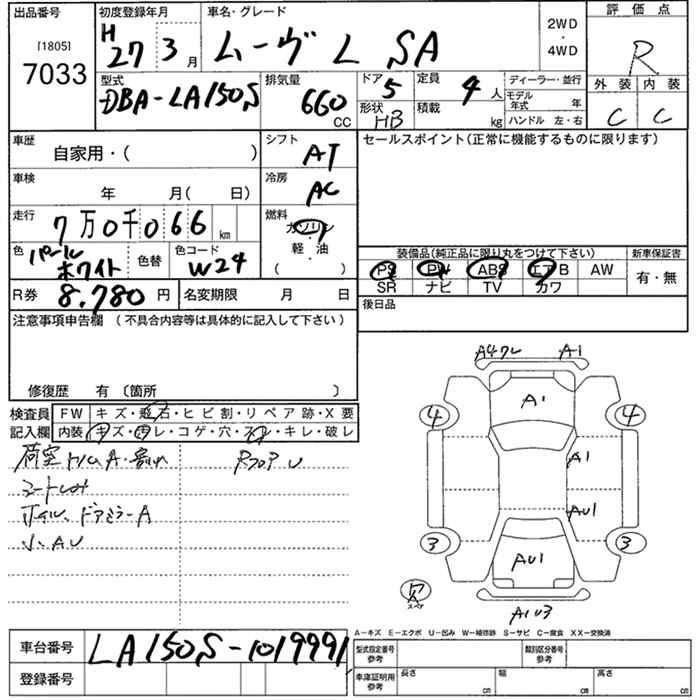 出品番号 初度登録年月 車名・グレード 評価点
[1805] H 27 3月 ムーヴ L SA 2WD・4WD R
7033 型式 排気量 ドア 5 定員 4人 ディーラー・並行 外装 内装
DBA-LA150S 660 CC 形状 HB 積載 kg モデル年式 年 C C
ハンドル 左・右
車歴 シフト セールスポイント(正常に機能するものに限ります)
自家用・( ) AT
車検 年 月( 日) 冷房 AC
走行 7万0千066 km 燃料 ガソリン
軽・油
( )
色 パールホワイト 色替 色コード W24
装備品(純正品に限り丸をつけて下さい) 新車保証書
PS PW ABS エアB AW 有・無
SR ナビ TV カワ
R券 8.780円 名変期限 月 日 後日品
注意事項申告欄 (不具合内容等は具体的に記入して下さい)
修復歴 有〔箇所 〕
検査員 FW キズ・飛石・ヒビ割・リペア跡・X要
記入欄 内装 キズ・ヨゴレ・コゲ・穴・スレ・キレ・破レ
荷室トリムA・割れ RフロアU
ホイル、ドアミラーA
小AU
A1
A1
4 4
A1
AU1
3 3
AU1
スペア
AーキズEーエクボUー凹みWー補修跡SーサビCー腐食XXー交換済
車台番号 LA150S-1019991
登録番号
型式指定番号 参考 類別区分番号 参考
車庫証明用 参考 長さ cm 幅 cm 高さ cm